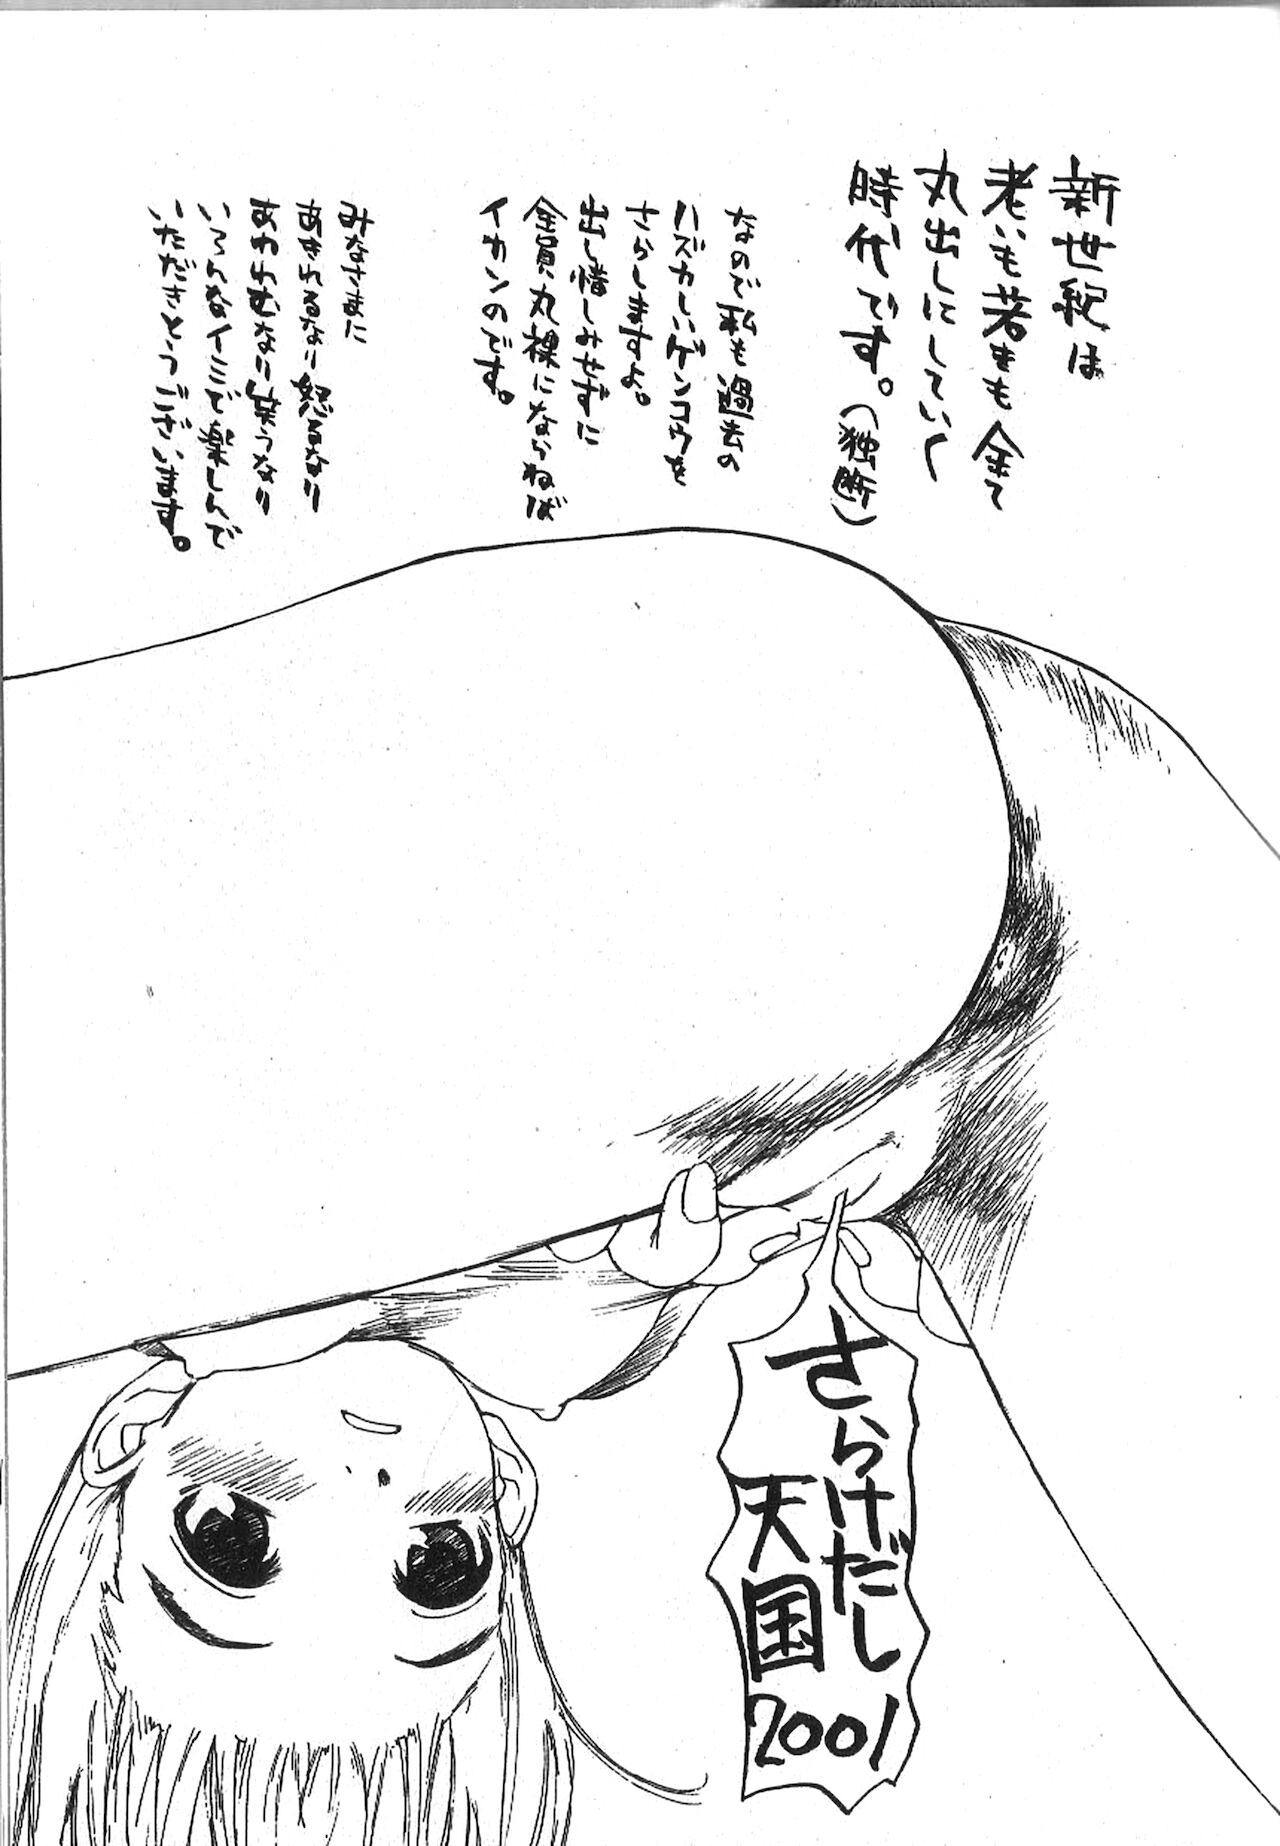 新世紀は
老いも若きも全て
丸出しにしていく
時代です。(独断)
なので私も過去の
ハズカしいゲンコウを
さらしますよ。
出し惜しみせずに
全員、丸裸にならねば
イカンのです。
みなさまに
あきれるなり怒るなり
あわれむなり笑うなり
いろんなイミで楽しんで
いただきとうございます。
さらけだし
天国
2001